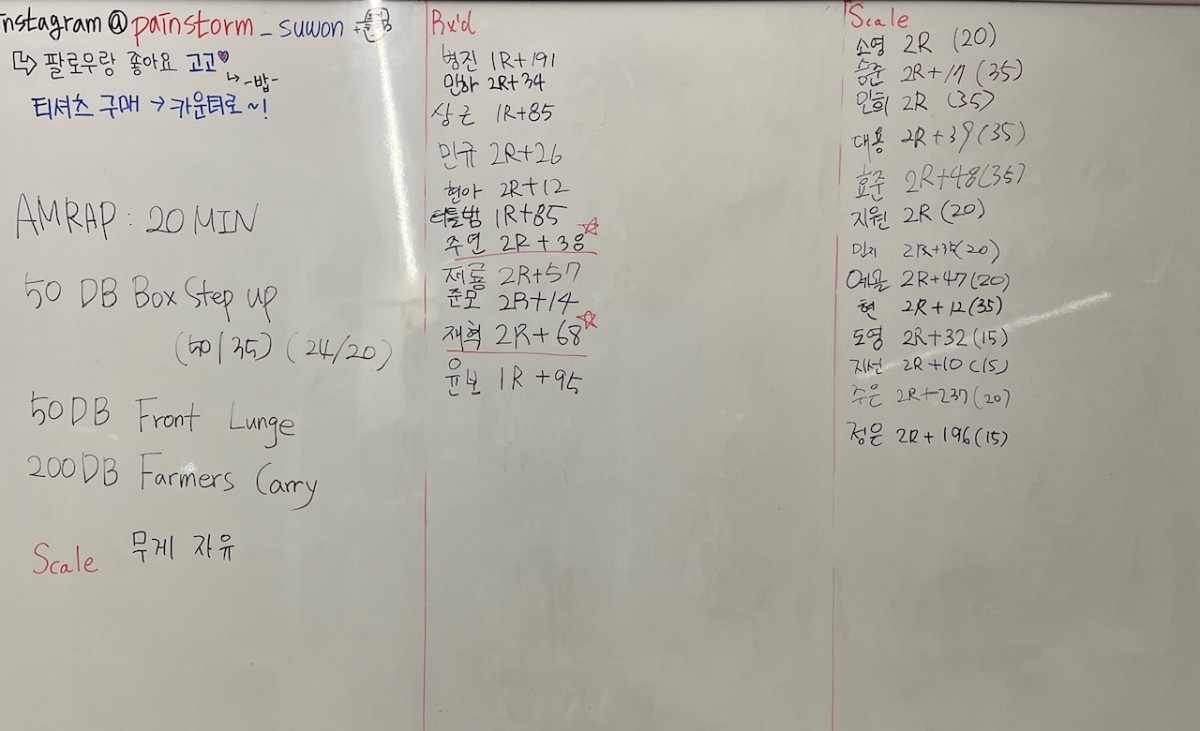 Instagram@painstorm_suwon
팔로우랑 좋아요 고고
-밥-
티셔츠 구매 → 카운터로~!
AMRAP: 20 MIN
50 DB Box Step up
(50/35) (24/20)
50DB Front Lunge
200DB Farmers Carry
Scale 무게 자유
Rx'd
병진 1R+191
민하 2R+34
상근 1R+85
민규 2R+26
현아 2R+12
터틀범 1R+85
주연 2R+38
재룡 2R+57
준모 2R+14
재혁 2R+68
윤보 1R+95
Scale
소영 2R (20)
승준 2R+17 (35)
민희 2R (35)
대용 2R+39 (35)
효준 2R+48(35)
지원 2R (20)
민지 2R+35(20)
예은 2R+47(20)
현 2R+12(35)
도영 2R+32(15)
지선 2R+10(15)
주은 2R+237(20)
정은 2R+196(15)